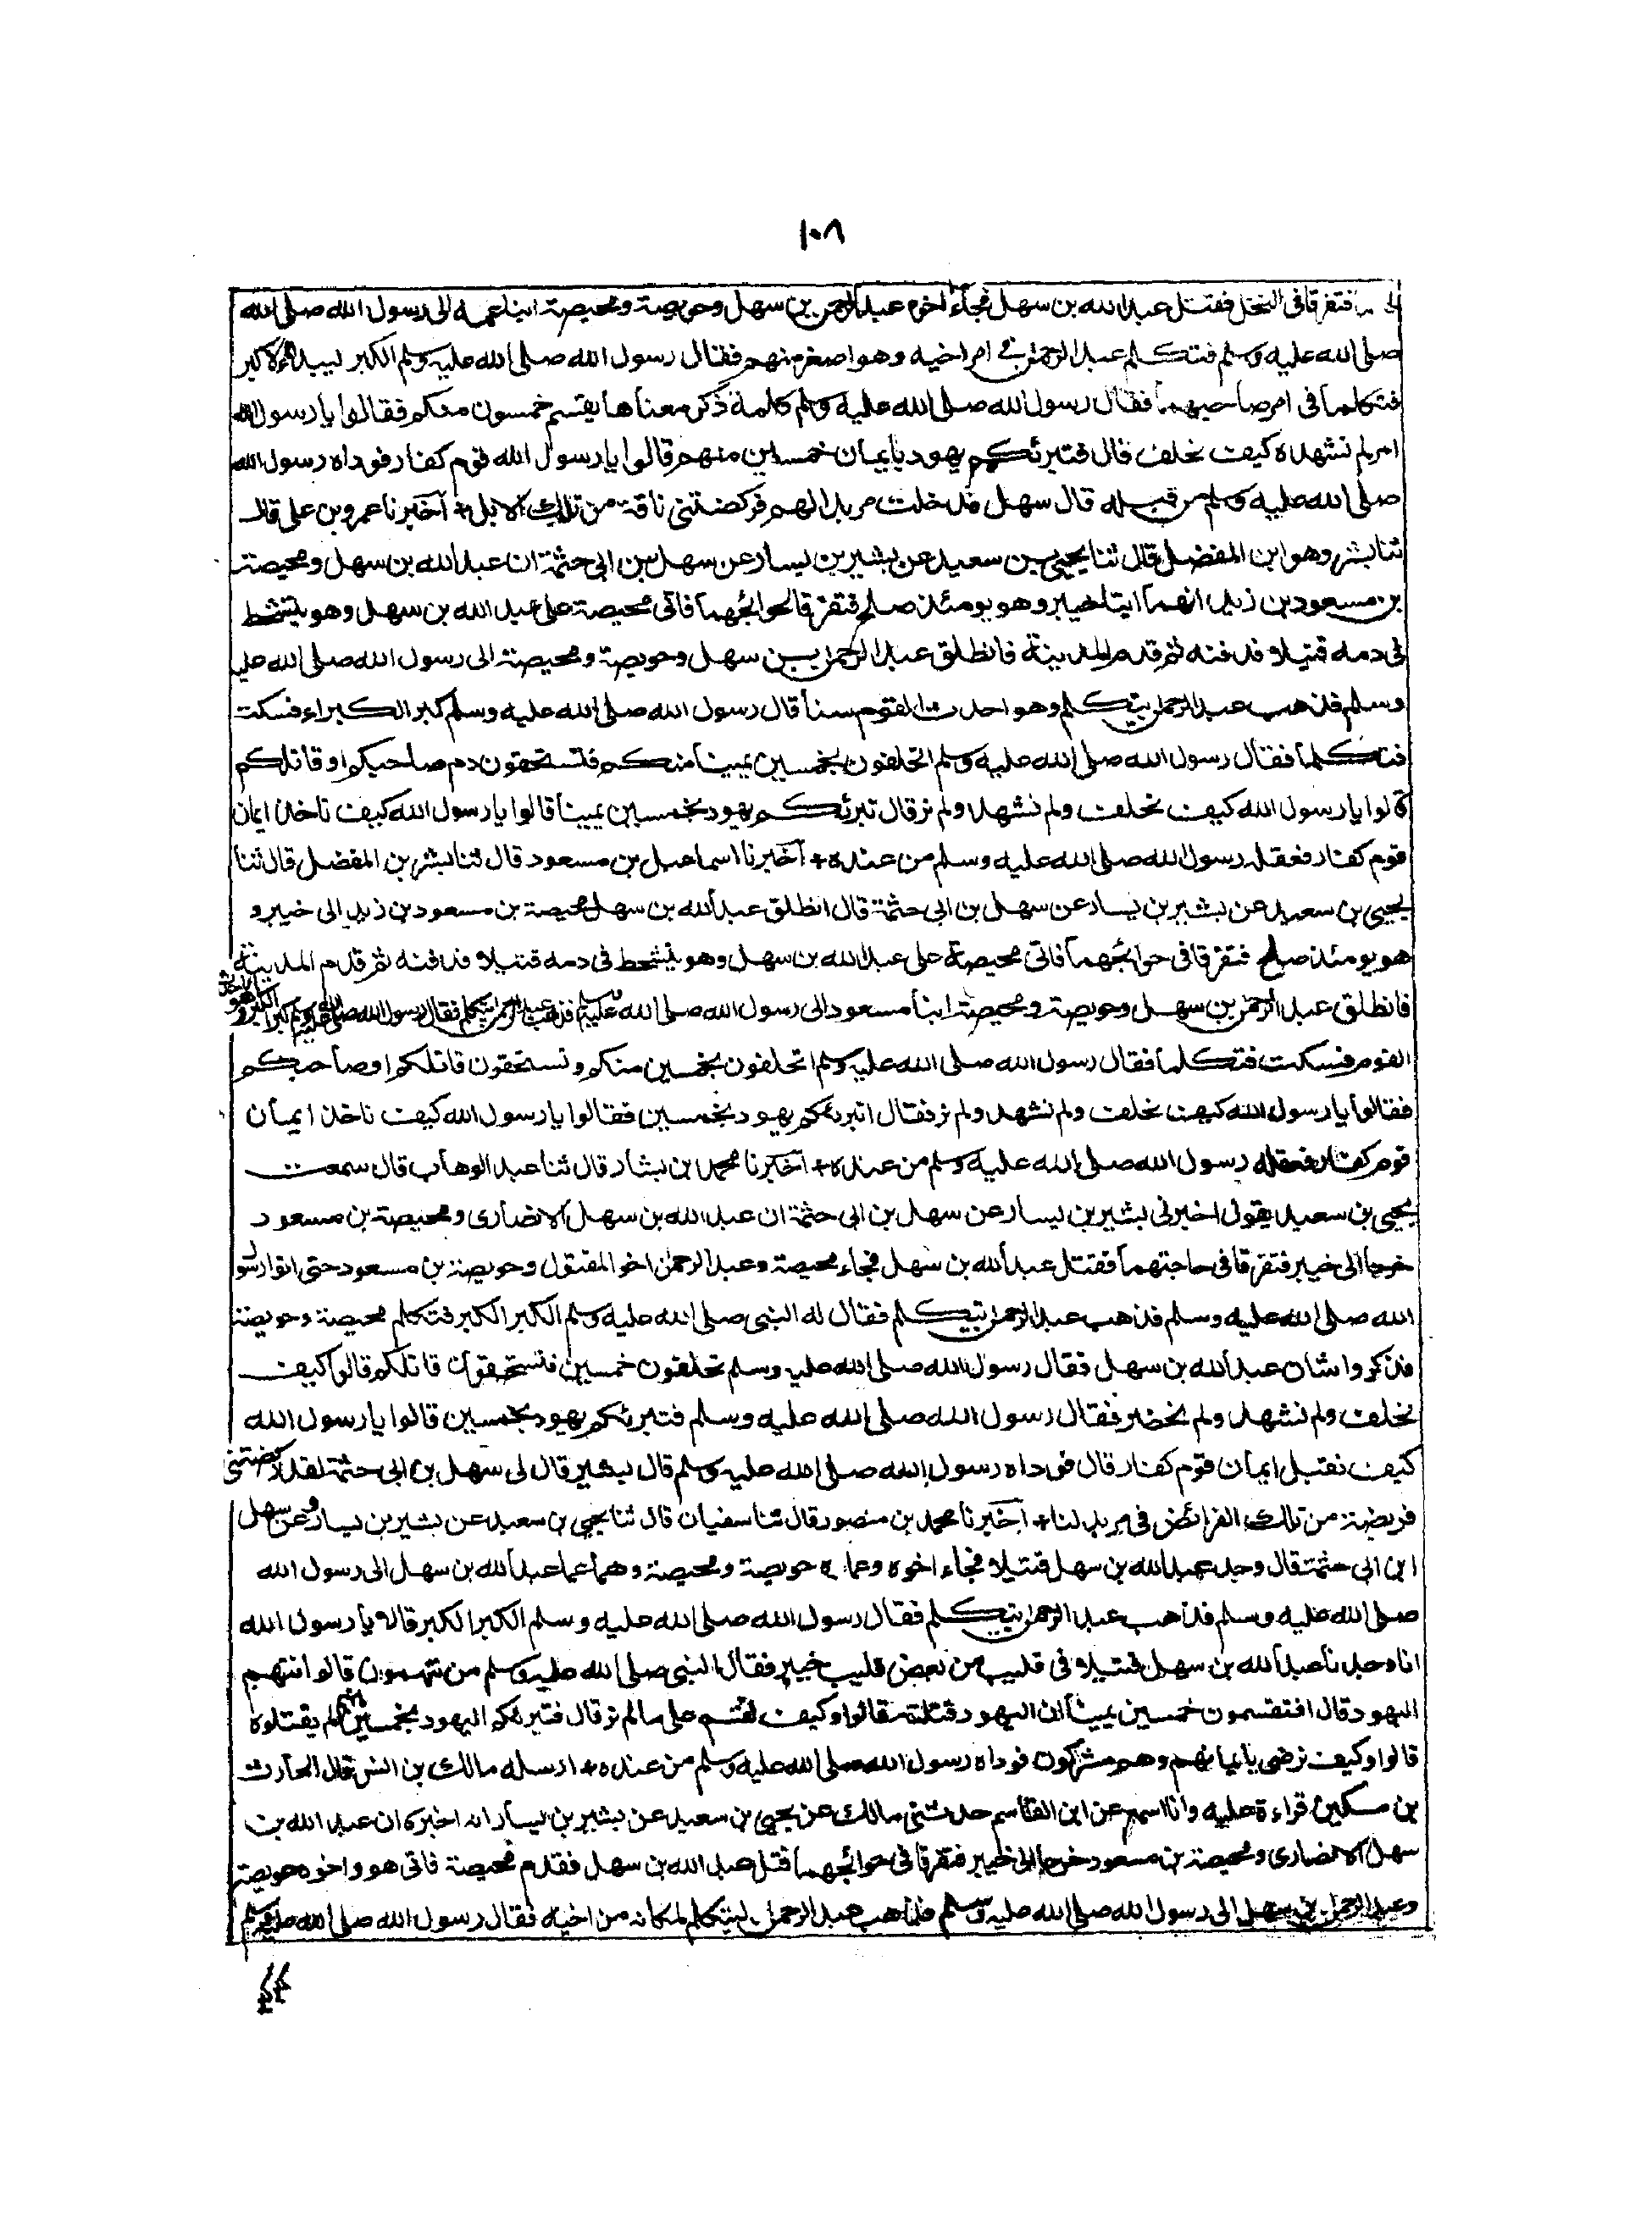 ١٠٨
فتفرقا فى النخل فقتل عبد الله بن سهل فجاء اخوه عبد الرحمن بن سهل وحويصة ومحيصة ابنا عمه الى رسول الله صلى الله
صلى الله عليه وسلم فتكلم عبد الرحمن فى امر اخيه وهو اصغر منهم فقال رسول الله صلى الله عليه وسلم الكبر ليبدأ الاكبر
فتكلما فى امر صاحبهما فقال رسول الله صلى الله عليه وسلم كلمة ذكر معناها يقسم خمسون منكم فقالوا يا رسول الله
امر لم نشهده كيف نحلف قال فتبرئكم يهود بايمان خمسين منهم قالوا يا رسول الله قوم كفار فوداه رسول الله
صلى الله عليه وسلم من قبله قال سهل فدخلت مربدا لهم فركضتنى ناقة من تلك الابل + آخبرنا عمرو بن على قال
ثنا بشر وهو ابن المفضل قال ثنا يحيى بن سعيد عن بشير بن يسار عن سهل بن ابى حثمة ان عبد الله بن سهل ومحيصة
بن مسعود بن زيد انهما اتيا خيبر وهو يومئذ صلح فتفرقا لحوائجهما فاتى محيصة على عبد الله بن سهل وهو يتشحط
فى دمه قتيلا فدفنه ثم قدم المدينة فانطلق عبد الرحمن بن سهل وحويصة ومحيصة الى رسول الله صلى الله عليه
وسلم فذهب عبد الرحمن يتكلم وهو احدث القوم سنا قال رسول الله صلى الله عليه وسلم كبر الكبراء فسكت
فتكلما فقال رسول الله صلى الله عليه وسلم اتحلفون بخمسين يمينا منكم فتستحقون دم صاحبكم او قاتلكم
قالوا يا رسول الله كيف نحلف ولم نشهد ولم نر قال تبرئكم يهود بخمسين يمينا قالوا يا رسول الله كيف ناخذ ايمان
قوم كفار فعقله رسول الله صلى الله عليه وسلم من عنده + آخبرنا اسماعيل بن مسعود قال ثنا بشر بن المفضل قال ثنا
يحيى بن سعيد عن بشير بن يسار عن سهل بن ابى حثمة قال انطلق عبد الله بن سهل ومحيصة بن مسعود بن زيد الى خيبر و
هو يومئذ صلح فتفرقا فى حوائجهما فاتى محيصة على عبد الله بن سهل وهو يتشحط فى دمه قتيلا فدفنه ثم قدم المدينة
فانطلق عبد الرحمن بن سهل وحويصة ومحيصة ابنا مسعود الى رسول الله صلى الله عليه وسلم فذهب عبد الرحمن يتكلم فقال رسول الله صلى الله عليه وسلم كبر الكبر وهو احدث
القوم فسكت فتكلما فقال رسول الله صلى الله عليه وسلم اتحلفون بخمسين منكم وتستحقون قاتلكم او صاحبكم
فقالوا يا رسول الله كيف نحلف ولم نشهد ولم نر فقال اتبرئكم يهود بخمسين فقالوا يا رسول الله كيف ناخذ ايمان
قوم كفار فعقله رسول الله صلى الله عليه وسلم من عنده + آخبرنا محمد بن بشار قال ثنا عبد الوهاب قال سمعت
يحيى بن سعيد يقول اخبرنى بشير بن يسار عن سهل بن ابى حثمة ان عبد الله بن سهل الانصارى ومحيصة بن مسعود
خرجا الى خيبر فتفرقا فى حاجتهما فقتل عبد الله بن سهل فجاء محيصة وعبد الرحمن اخو المقتول وحويصة بن مسعود حتى اتوا رسول
الله صلى الله عليه وسلم فذهب عبد الرحمن يتكلم فقال له النبى صلى الله عليه وسلم الكبر الكبر فتكلم محيصة وحويصة
فذكروا شان عبد الله بن سهل فقال رسول الله صلى الله عليه وسلم تحلفون خمسين فتستحقون قاتلكم قالوا كيف
نحلف ولم نشهد ولم نحضر فقال رسول الله صلى الله عليه وسلم فتبرئكم يهود بخمسين قالوا يا رسول الله
كيف نقبل ايمان قوم كفار قال فوداه رسول الله صلى الله عليه وسلم قال بشير قال لى سهل بن ابى حثمة لقد ركضتنى
فريضة من تلك الفرائض فى مربد لنا + آخبرنا محمد بن منصور قال ثنا سفيان قال ثنا يحيى بن سعيد عن بشير بن يسار عن سهل
ابن ابى حثمة قال وجد عبد الله بن سهل قتيلا فجاء اخوه وعماه حويصة ومحيصة وهما عما عبد الله بن سهل الى رسول الله
صلى الله عليه وسلم فذهب عبد الرحمن يتكلم فقال رسول الله صلى الله عليه وسلم الكبر الكبر قالا يا رسول الله
انا وجدنا عبد الله بن سهل قتيلا فى قليب من بعض قليب خيبر فقال النبى صلى الله عليه وسلم من تتهمون قالوا نتهم
اليهود قال افتقسمون خمسين يمينا ان اليهود قتلته قالوا وكيف نقسم على ما لم نر قال فتبرئكم اليهود بخمسين انهم لم يقتلوه
قالوا وكيف نرضى بايمانهم وهم مشركون فوداه رسول الله صلى الله عليه وسلم من عنده + ارسله مالك بن انس قال الحارث
بن مسكين قراءة عليه وانا اسمع عن ابن القاسم حدثنى مالك عن يحيى بن سعيد عن بشير بن يسار انه اخبره ان عبد الله بن
سهل الانصارى ومحيصة بن مسعود خرجا الى خيبر فتفرقا فى حوائجهما فقتل عبد الله بن سهل فقدم محيصة فاتى هو واخوه حويصة
وعبد الرحمن بن سهل الى رسول الله صلى الله عليه وسلم فذهب عبد الرحمن ليتكلم لمكانه من اخيه فقال رسول الله صلى الله عليه وسلم